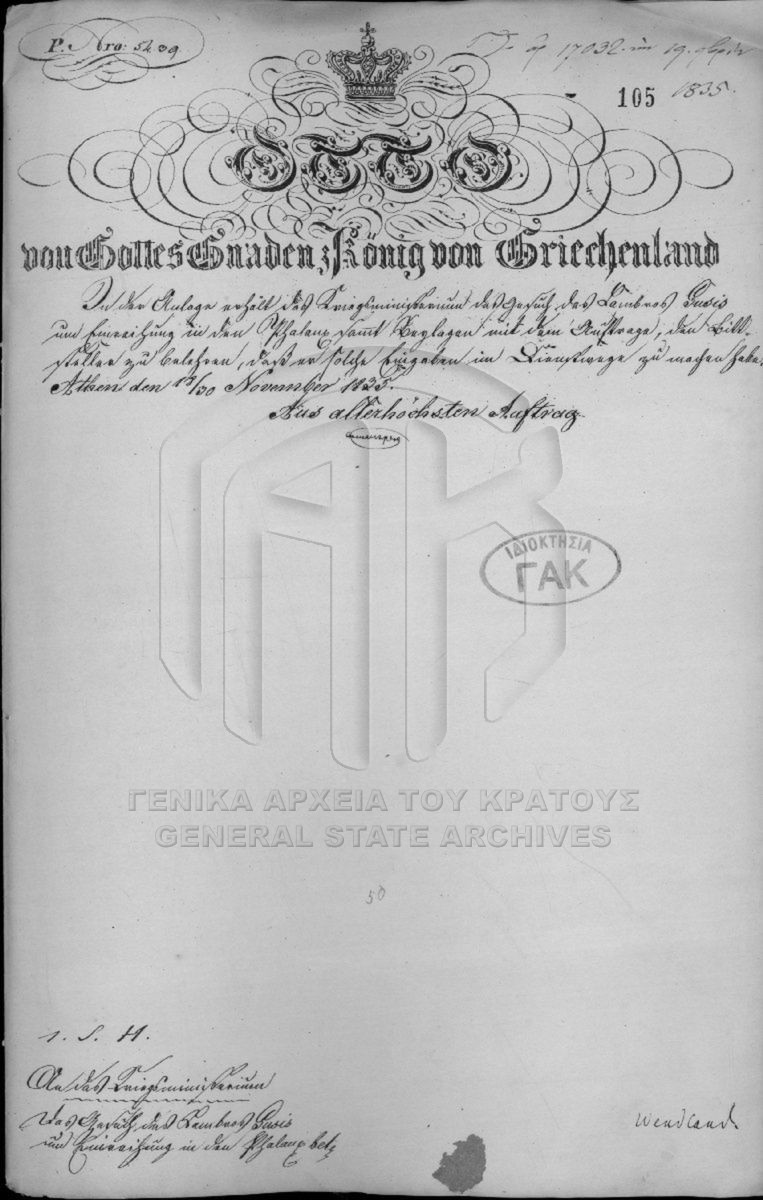 P. Nro: 5439.
17032 19
105 1835.
OTTO
von Gottes Gnaden König von Griechenland
In der Anlage erhält das Kriegsministerium das Gesuch des Lambros Gusis
um Einreihung in den Phalanx samt Beylagen mit dem Auftrage, den Bitt-
steller zu belehren, daß er solche Eingaben im Dienstwege zu machen habe.
Athen den 18/30 November 1835.
Aus allerhöchsten Auftrag
ΙΔΙΟΚΤΗΣΙΑ
ΓΑΚ
ΓΕΝΙΚΑ ΑΡΧΕΙΑ ΤΟΥ ΚΡΑΤΟΥΣ
GENERAL STATE ARCHIVES
50
1. S. H.
An das Kriegsministerium
Das Gesuch des Lambros Gusis
um Einreihung in den Phalanx betr
Wendland